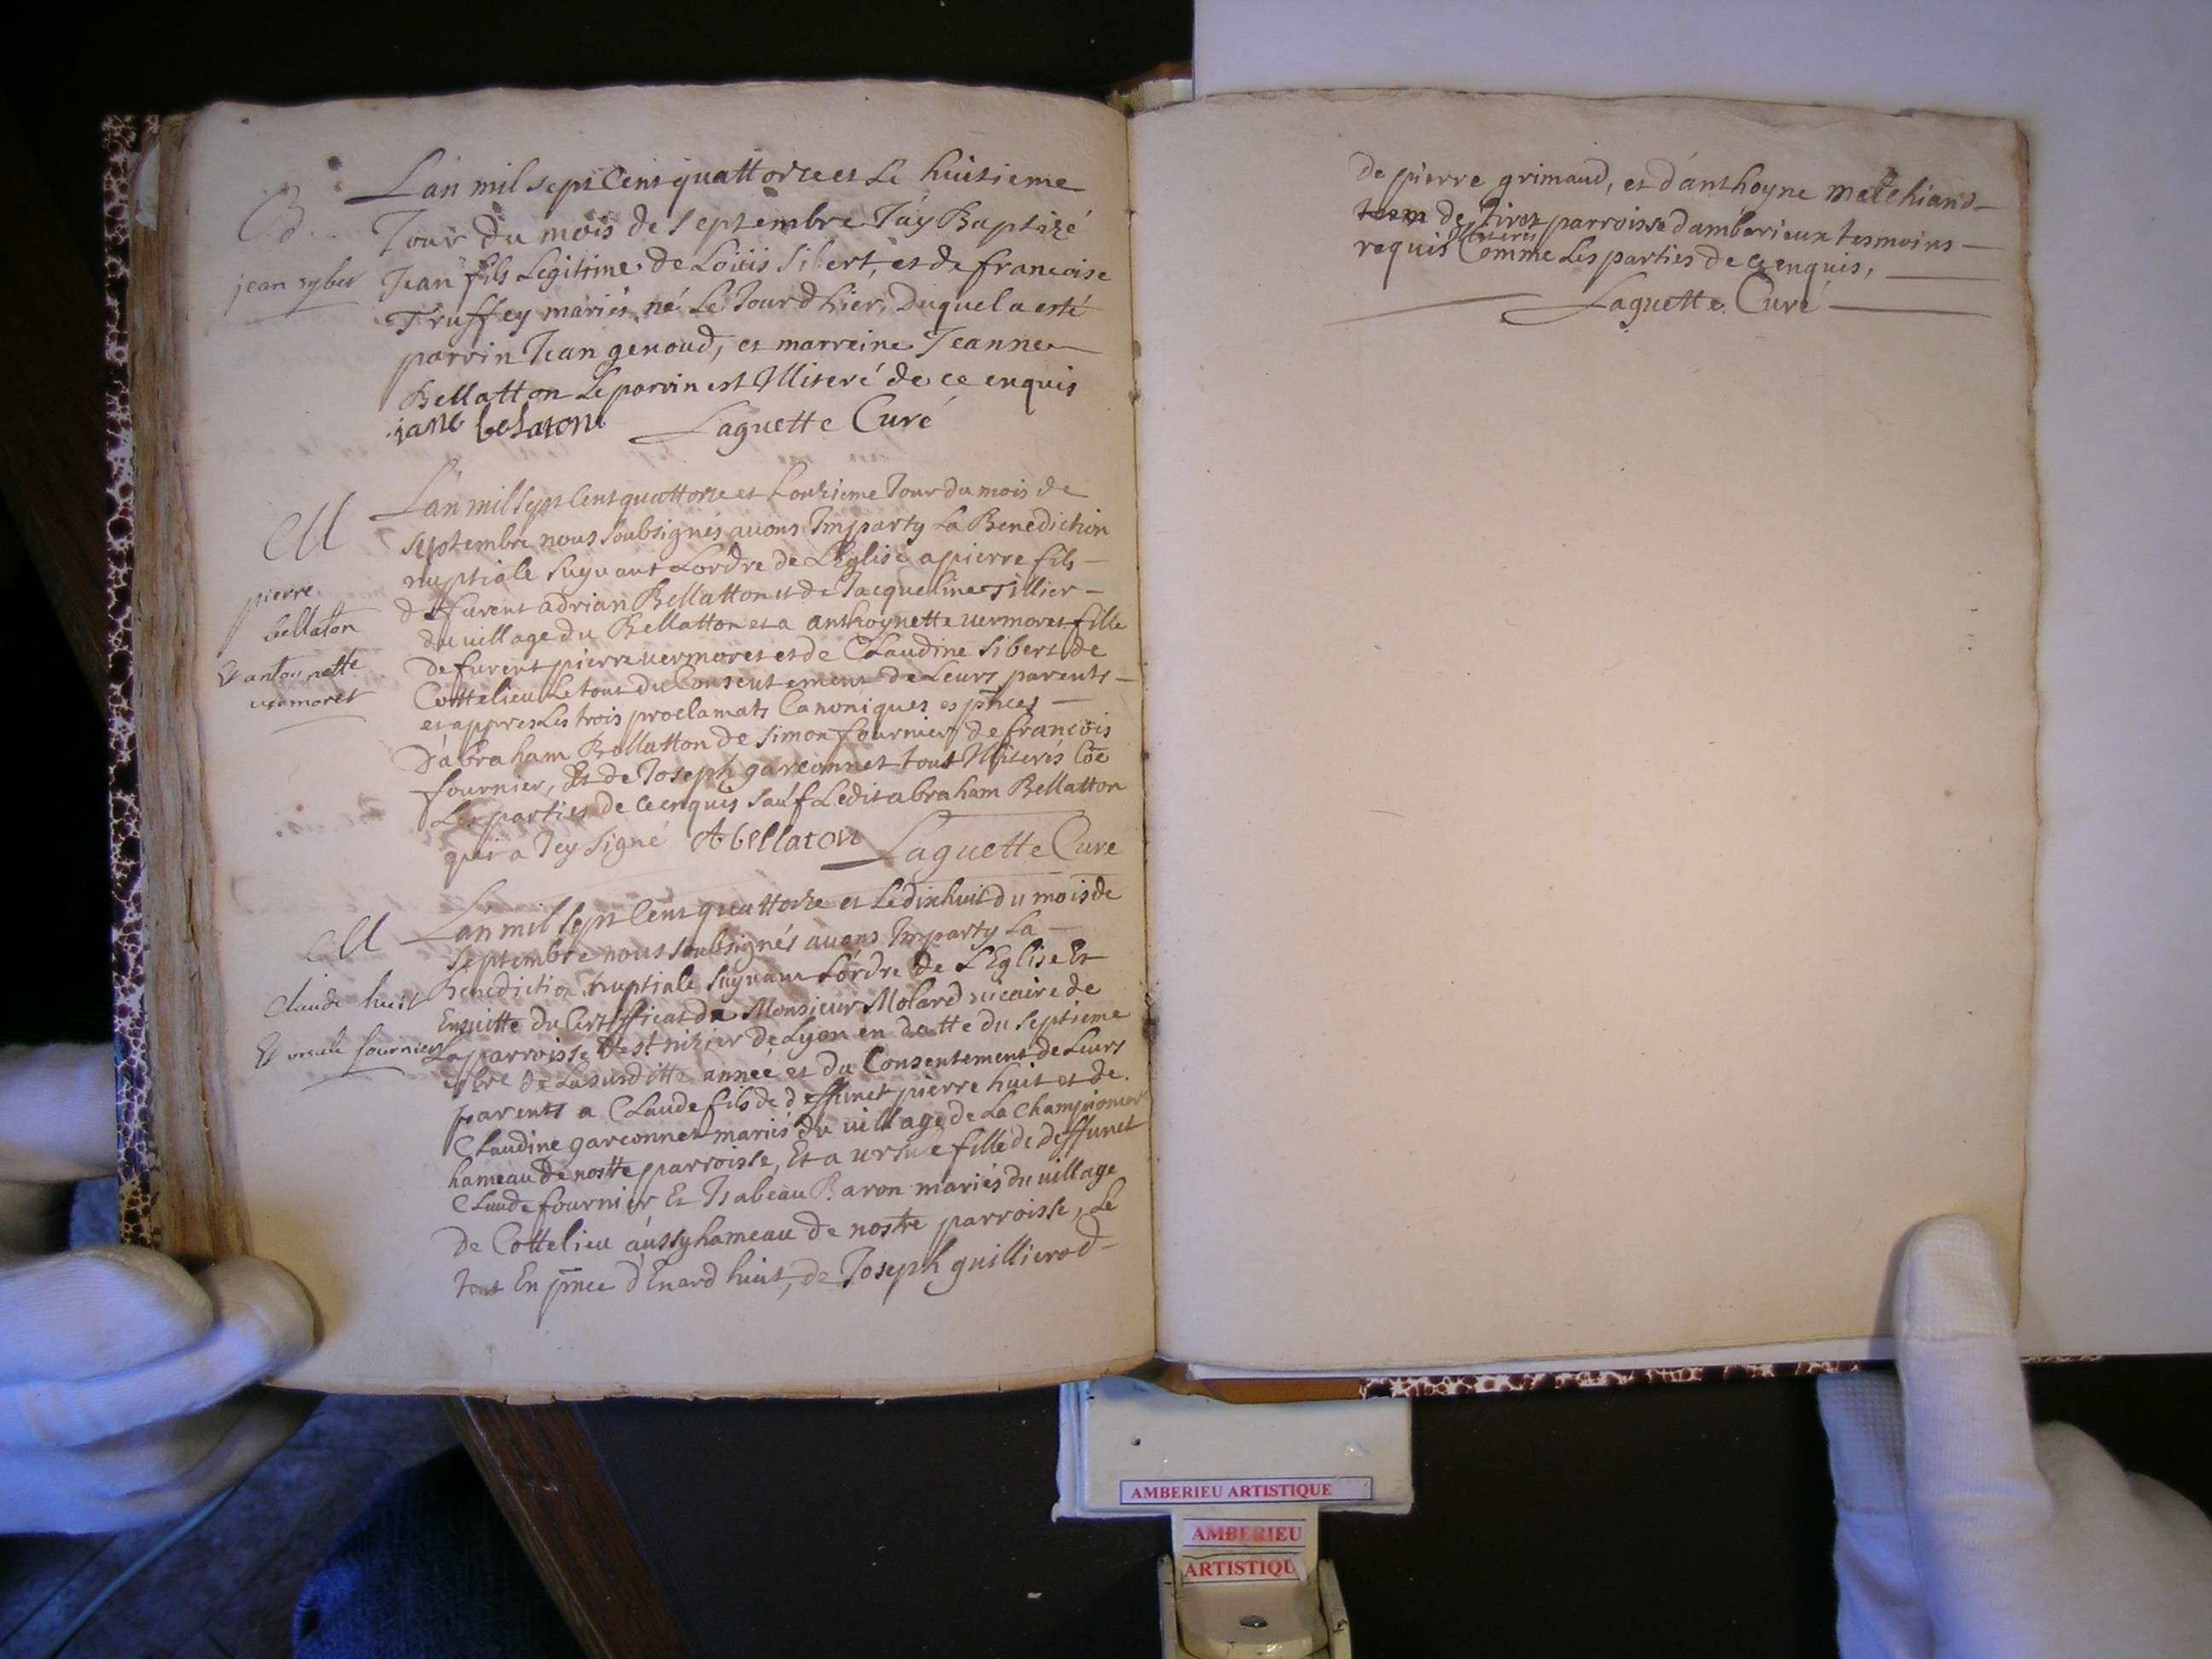 B.
jean syber
L'an mil sept Cent quattorze et Le huitieme
Jour Du mois de Septembre J'ay Baptizé
Jean fils Legitime de Loüis Sibert, et de francoise
Truffey mariés, né Le Jour d'hier, Duquel a esté
parrin Jean genoud, et marreine Jeanne
Bellatton Le parrin est Illiteré de ce enquis
jane belatone Laguette Curé
M
pierre
bellaton
Et antoynette
vermoret
L'an mil Sept Cent quattorze et L'onzieme Jour du mois de
Septembre nous Soubsignés avons Imparty La Benediction
nuptiale Suyuant L'ordre de L'Eglise a pierre fils
De furent adrian Bellatton et de Jacqueline Tillier
du village du Bellatton et a anthoynette vermoret fille
De furent pierre vermoret et de Claudine Sibert de
Cottelieu Le tout du Consentement de Leurs parents
et appres Les trois proclamats Canoniques es pñces
D'abraham Bellatton de Simon fournier, de francois
fournier, Et de Joseph garconnet tous Illiterés Cõe
Les parties de ce enquis Sauf Ledit abraham Bellatton
qui a Icy Signé Abellaton Laguette Cure
M
Claude huit
Et ursule fournier
L'an mil Sept Cent quattorze et Le dixhuit du mois de
Septembre nous Soubsignés avons Imparty La
Benediction nuptiale Suyuant L'ordre de L'Eglise Et
Ensuitte du Certifficat de Monsieur Molard vicaire de
La parroisse de St nizier de Lyon en datte du Septieme
7bre de La susditte année et du Consentement de Leurs
parents a Claude fils de deffunct pierre huit et de
Claudine garconnet mariés du village de La Championiere
hameau de nostre parroisse, Et a ursule fille de deffunct
Claude fournier Et Isabeau Baron mariés du village
de Cottelieu aussy hameau de nostre parroisse, Le
tout En pñce d'Enard huit, de Joseph guillierod
de pierre grimaud, et d'anthoyne Melchiand
de Tiret parroisse d'amberieux tesmoins
Illiterés
requis Comme Les parties de ce enquis,
Laguette Curé
AMBERIEU ARTISTIQUE
AMBERIEU
ARTISTIQU